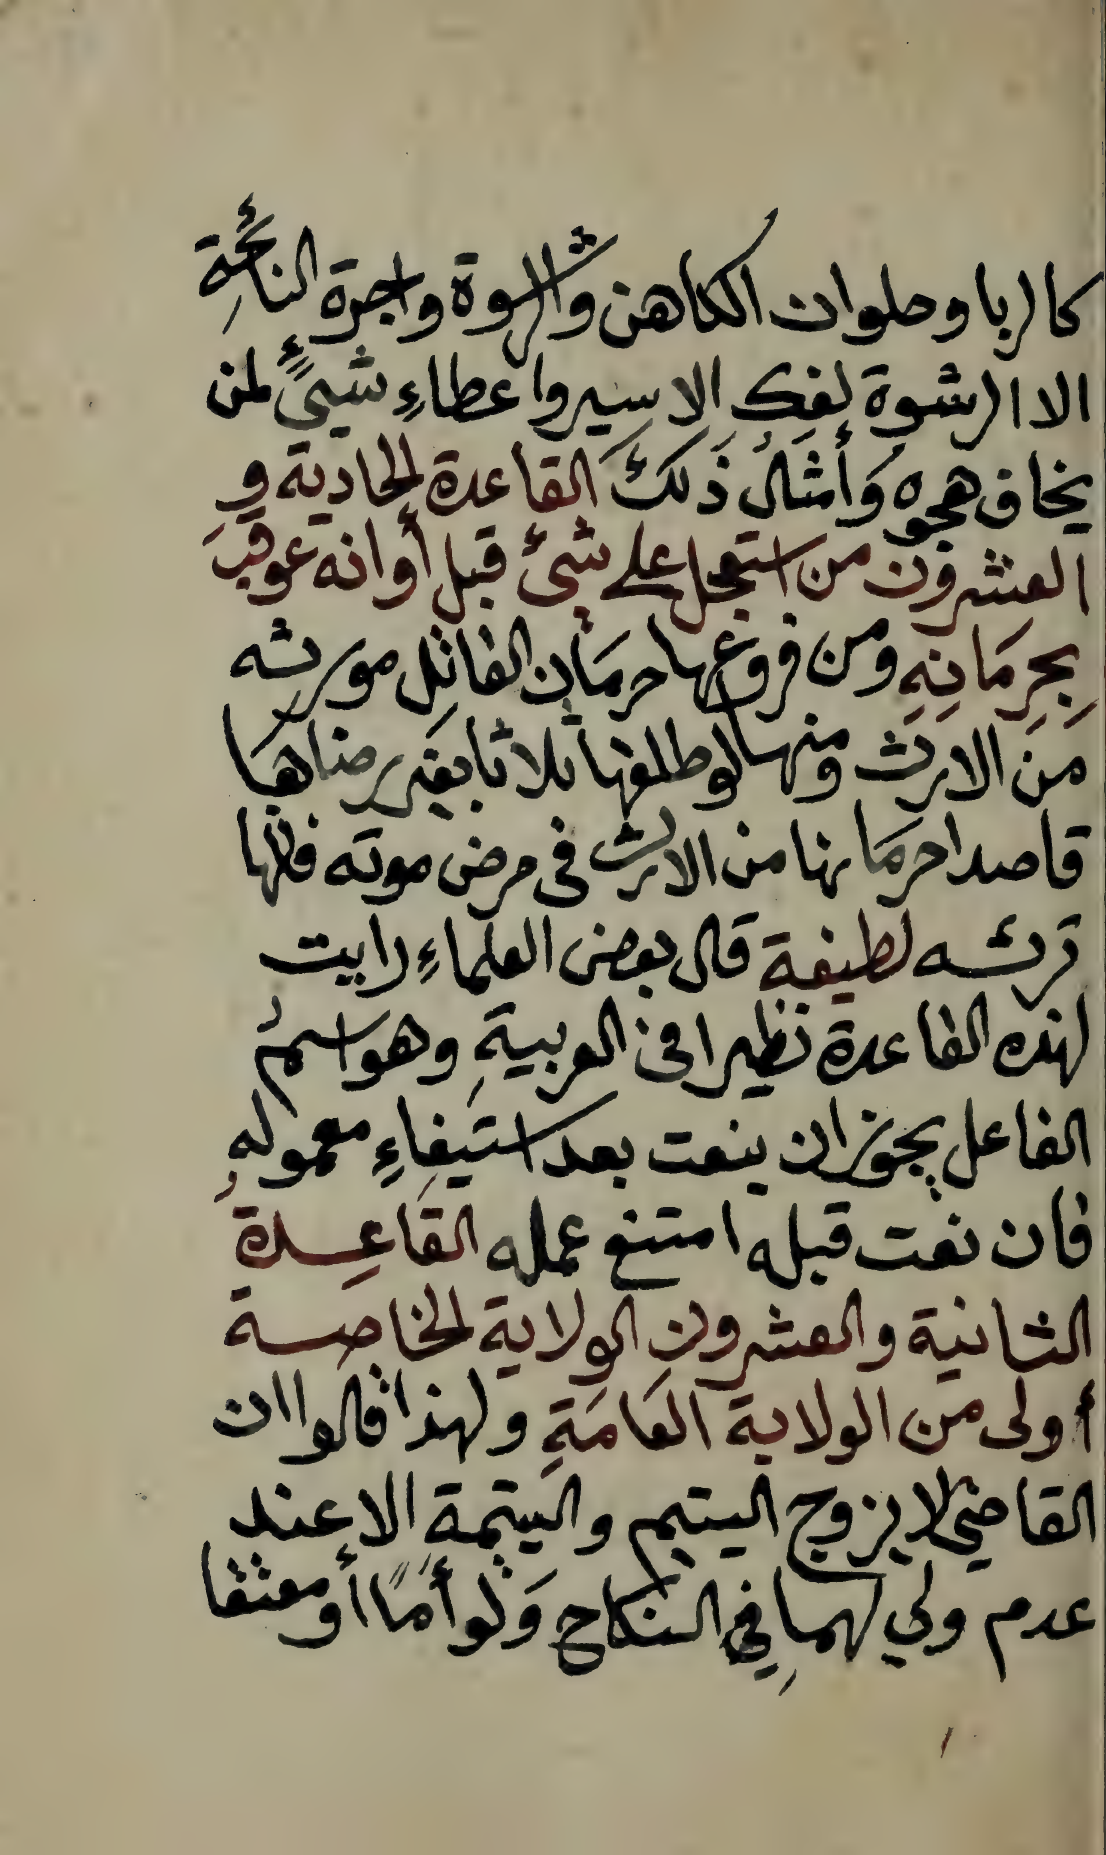 كالربا وحلوان الكاهن والرشوة واجرة النائحة
الا الرشوة لفك الاسير واعطاءِ شيئٍ لمن
يخاف هجوه وَأمثَالُ ذَلكَ القاعدة الحادية و
العشرون من استعجل على شئ قبل أوانه عوقبَ
بِحِرمَانِهِ ومن فروعها حرمَان القاتل مورثه
من الارث ومنها لو طلقها ثلاثا بغير رضاها
قاصدا حرمَانها من الارث فى مرض موته فانها
ترثه لطيفة قال بعض العلماءِ رايت
لهذه القاعدة نظيرا فى العربيةِ وهو اسمُ
الفاعل يجوز ان ينعت بعد استيفاءِ معموله
فان نعت قبله امتنع عمله القَاعِدةُ
الثانية والعشرون الولاية الخاصة
أولى من الولاية العَامَةِ ولهذا قالوا ان
القاضي لا يزوج اليتيم واليتيمة الا عند
عدم ولي لهما فِي النكاح وَلَو أمًا أو معتقا